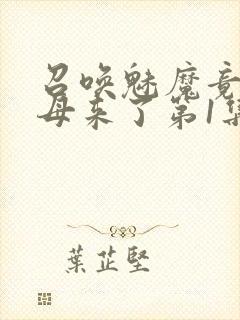 召唤魅魔竟
母来了第1集
葉芷堅